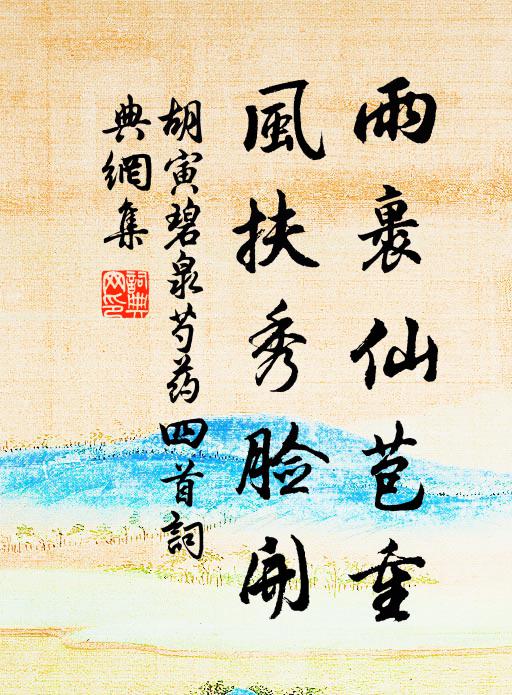 雨裹仙苞重
風扶秀脸開
胡寅碧泉芍药四首詞
典網集
詞典
网印